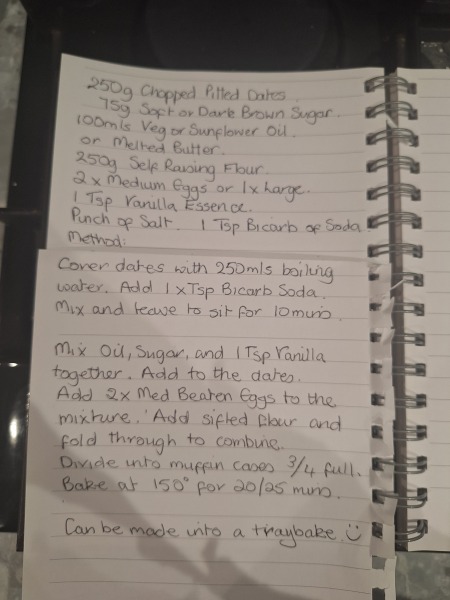 250g Chopped Pitted Dates.
75g Soft or Dark Brown Sugar.
100mls Veg or Sunflower Oil.
or Melted Butter.
250g Self Raising Flour.
2 x Medium Eggs or 1 x Large.
1 Tsp Vanilla Essence.
Pinch of Salt. 1 Tsp Bicarb of Soda.
Method:
Cover dates with 250mls boiling
water. Add 1 x Tsp Bicarb Soda.
Mix and leave to sit for 10 mins.
Mix Oil, Sugar, and 1 Tsp Vanilla
together. Add to the dates.
Add 2x Med Beaten Eggs to the
mixture. Add sifted flour and
fold through to combine.
Divide into muffin cases 3/4 full.
Bake at 150° for 20/25 mins.
Can be made into a traybake. ☺